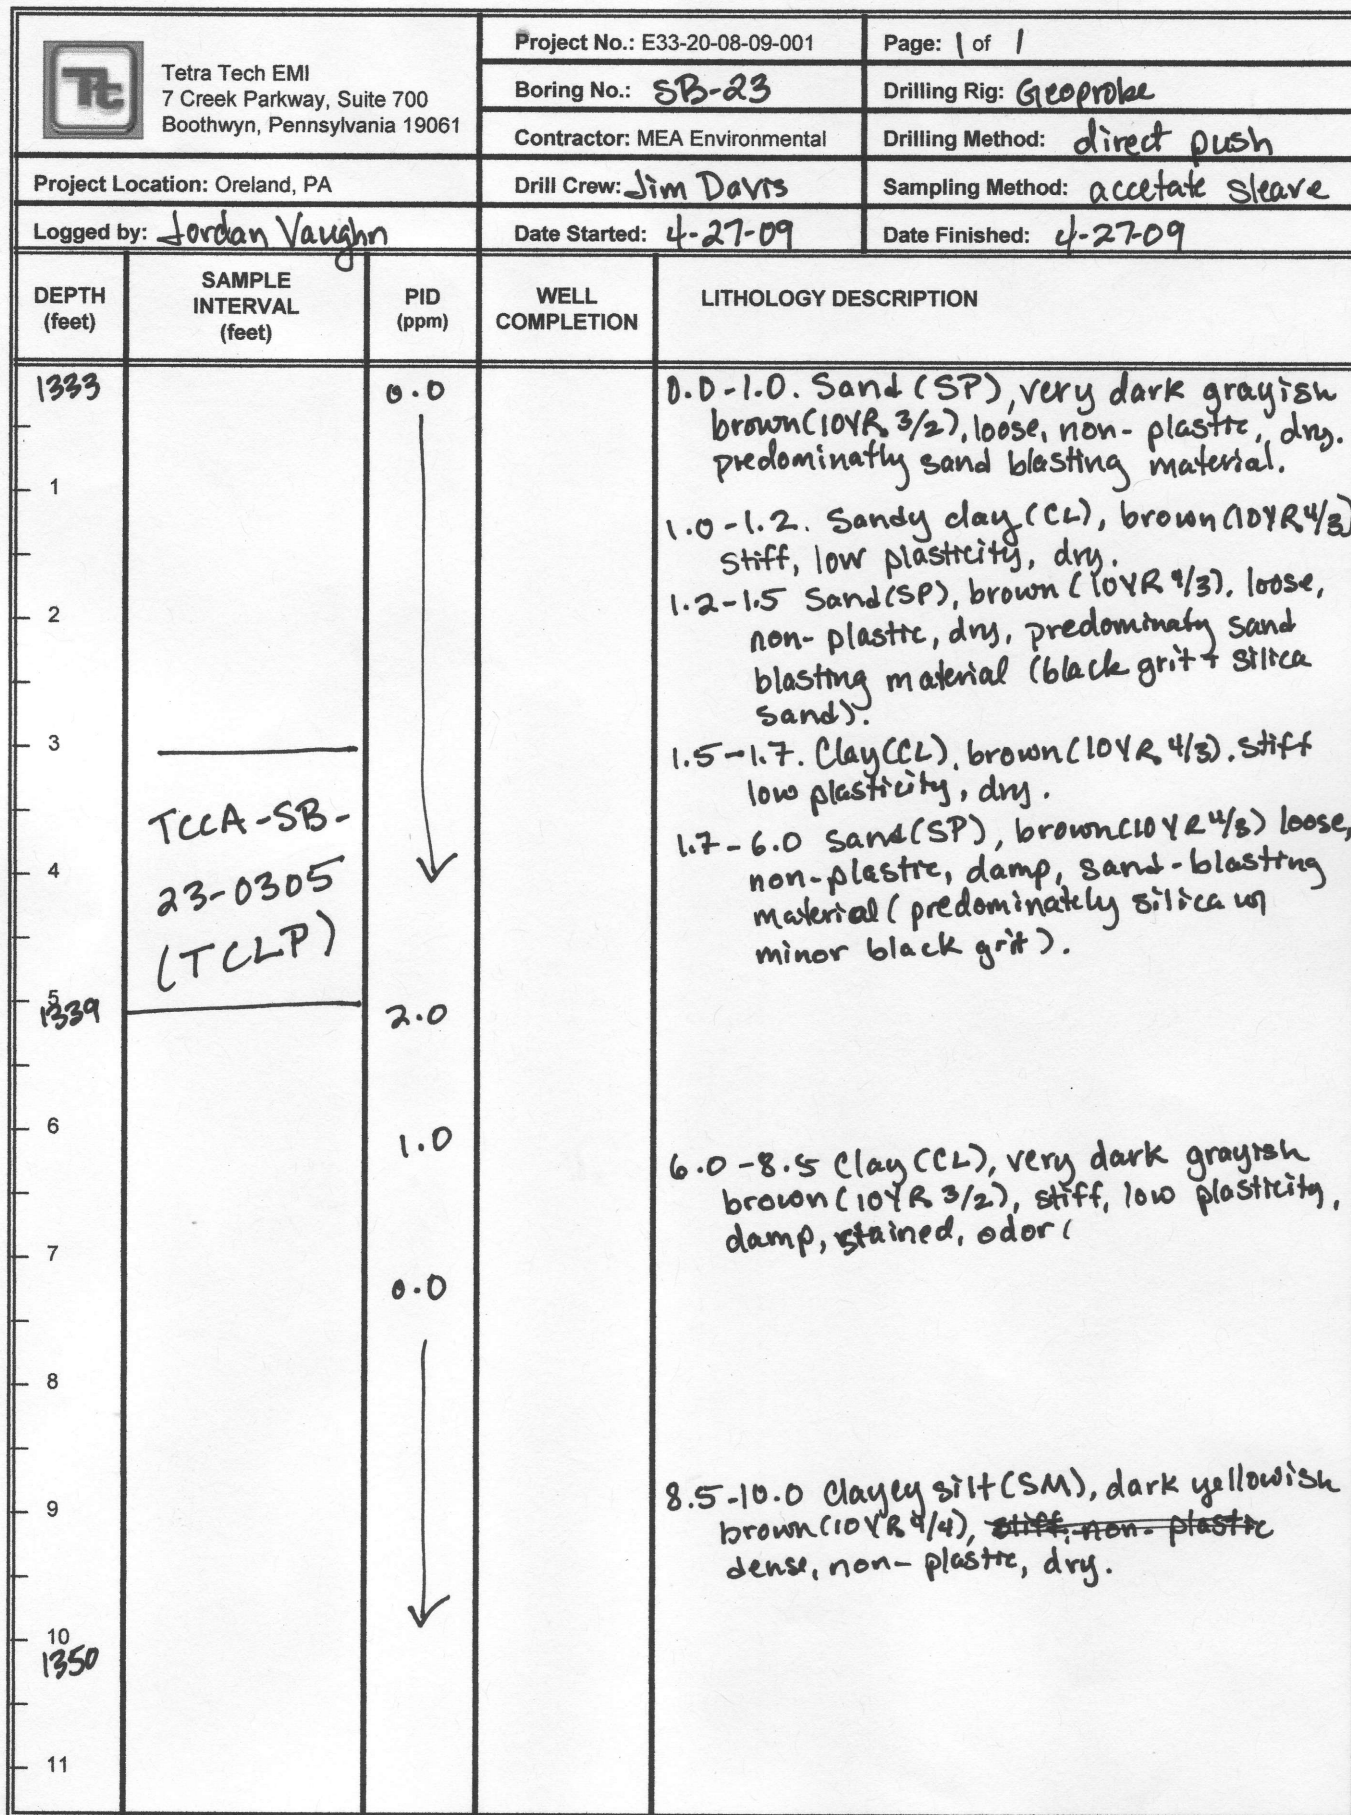 Tt
Tetra Tech EMI
7 Creek Parkway, Suite 700
Boothwyn, Pennsylvania 19061
Project No.: E33-20-08-09-001
Page: 1 of 1
Boring No.: SB-23
Drilling Rig: Geoprobe
Contractor: MEA Environmental
Drilling Method: direct push
Project Location: Oreland, PA
Drill Crew: Jim Davis
Sampling Method: accetate sleave
Logged by: Jordan Vaughn
Date Started: 4-27-09
Date Finished: 4-27-09
DEPTH
(feet)
SAMPLE
INTERVAL
(feet)
PID
(ppm)
WELL
COMPLETION
LITHOLOGY DESCRIPTION
1333
0.0
0.0-1.0. Sand (SP), very dark grayish
brown (10YR 3/2), loose, non-plastic, dry.
predominatly sand blasting material.
1
1.0-1.2. Sandy clay (CL), brown (10YR 4/3)
stiff, low plasticity, dry.
1.2-1.5 Sand (SP), brown (10YR 4/3), loose,
2
non-plastic, dry, predominaty sand
blasting material (black grit + silica
sand).
3
1.5-1.7. Clay (CL), brown (10YR 4/3). stiff
low plasticity, dry.
TCCA-SB-
23-0305
(TCLP)
1.7-6.0 Sand (SP), brown (10YR 4/3) loose,
4
non-plastic, damp, sand-blasting
material (predominately silica w/
minor black grit).
5
1339
2.0
6
1.0
6.0-8.5 Clay (CL), very dark grayish
brown (10YR 3/2), stiff, low plasticity,
damp, stained, odor (
7
0.0
8
8.5-10.0 Clayey silt (SM), dark yellowish
9
brown (10YR 4/4), stiff, non-plastic
dense, non-plastic, dry.
10
1350
11